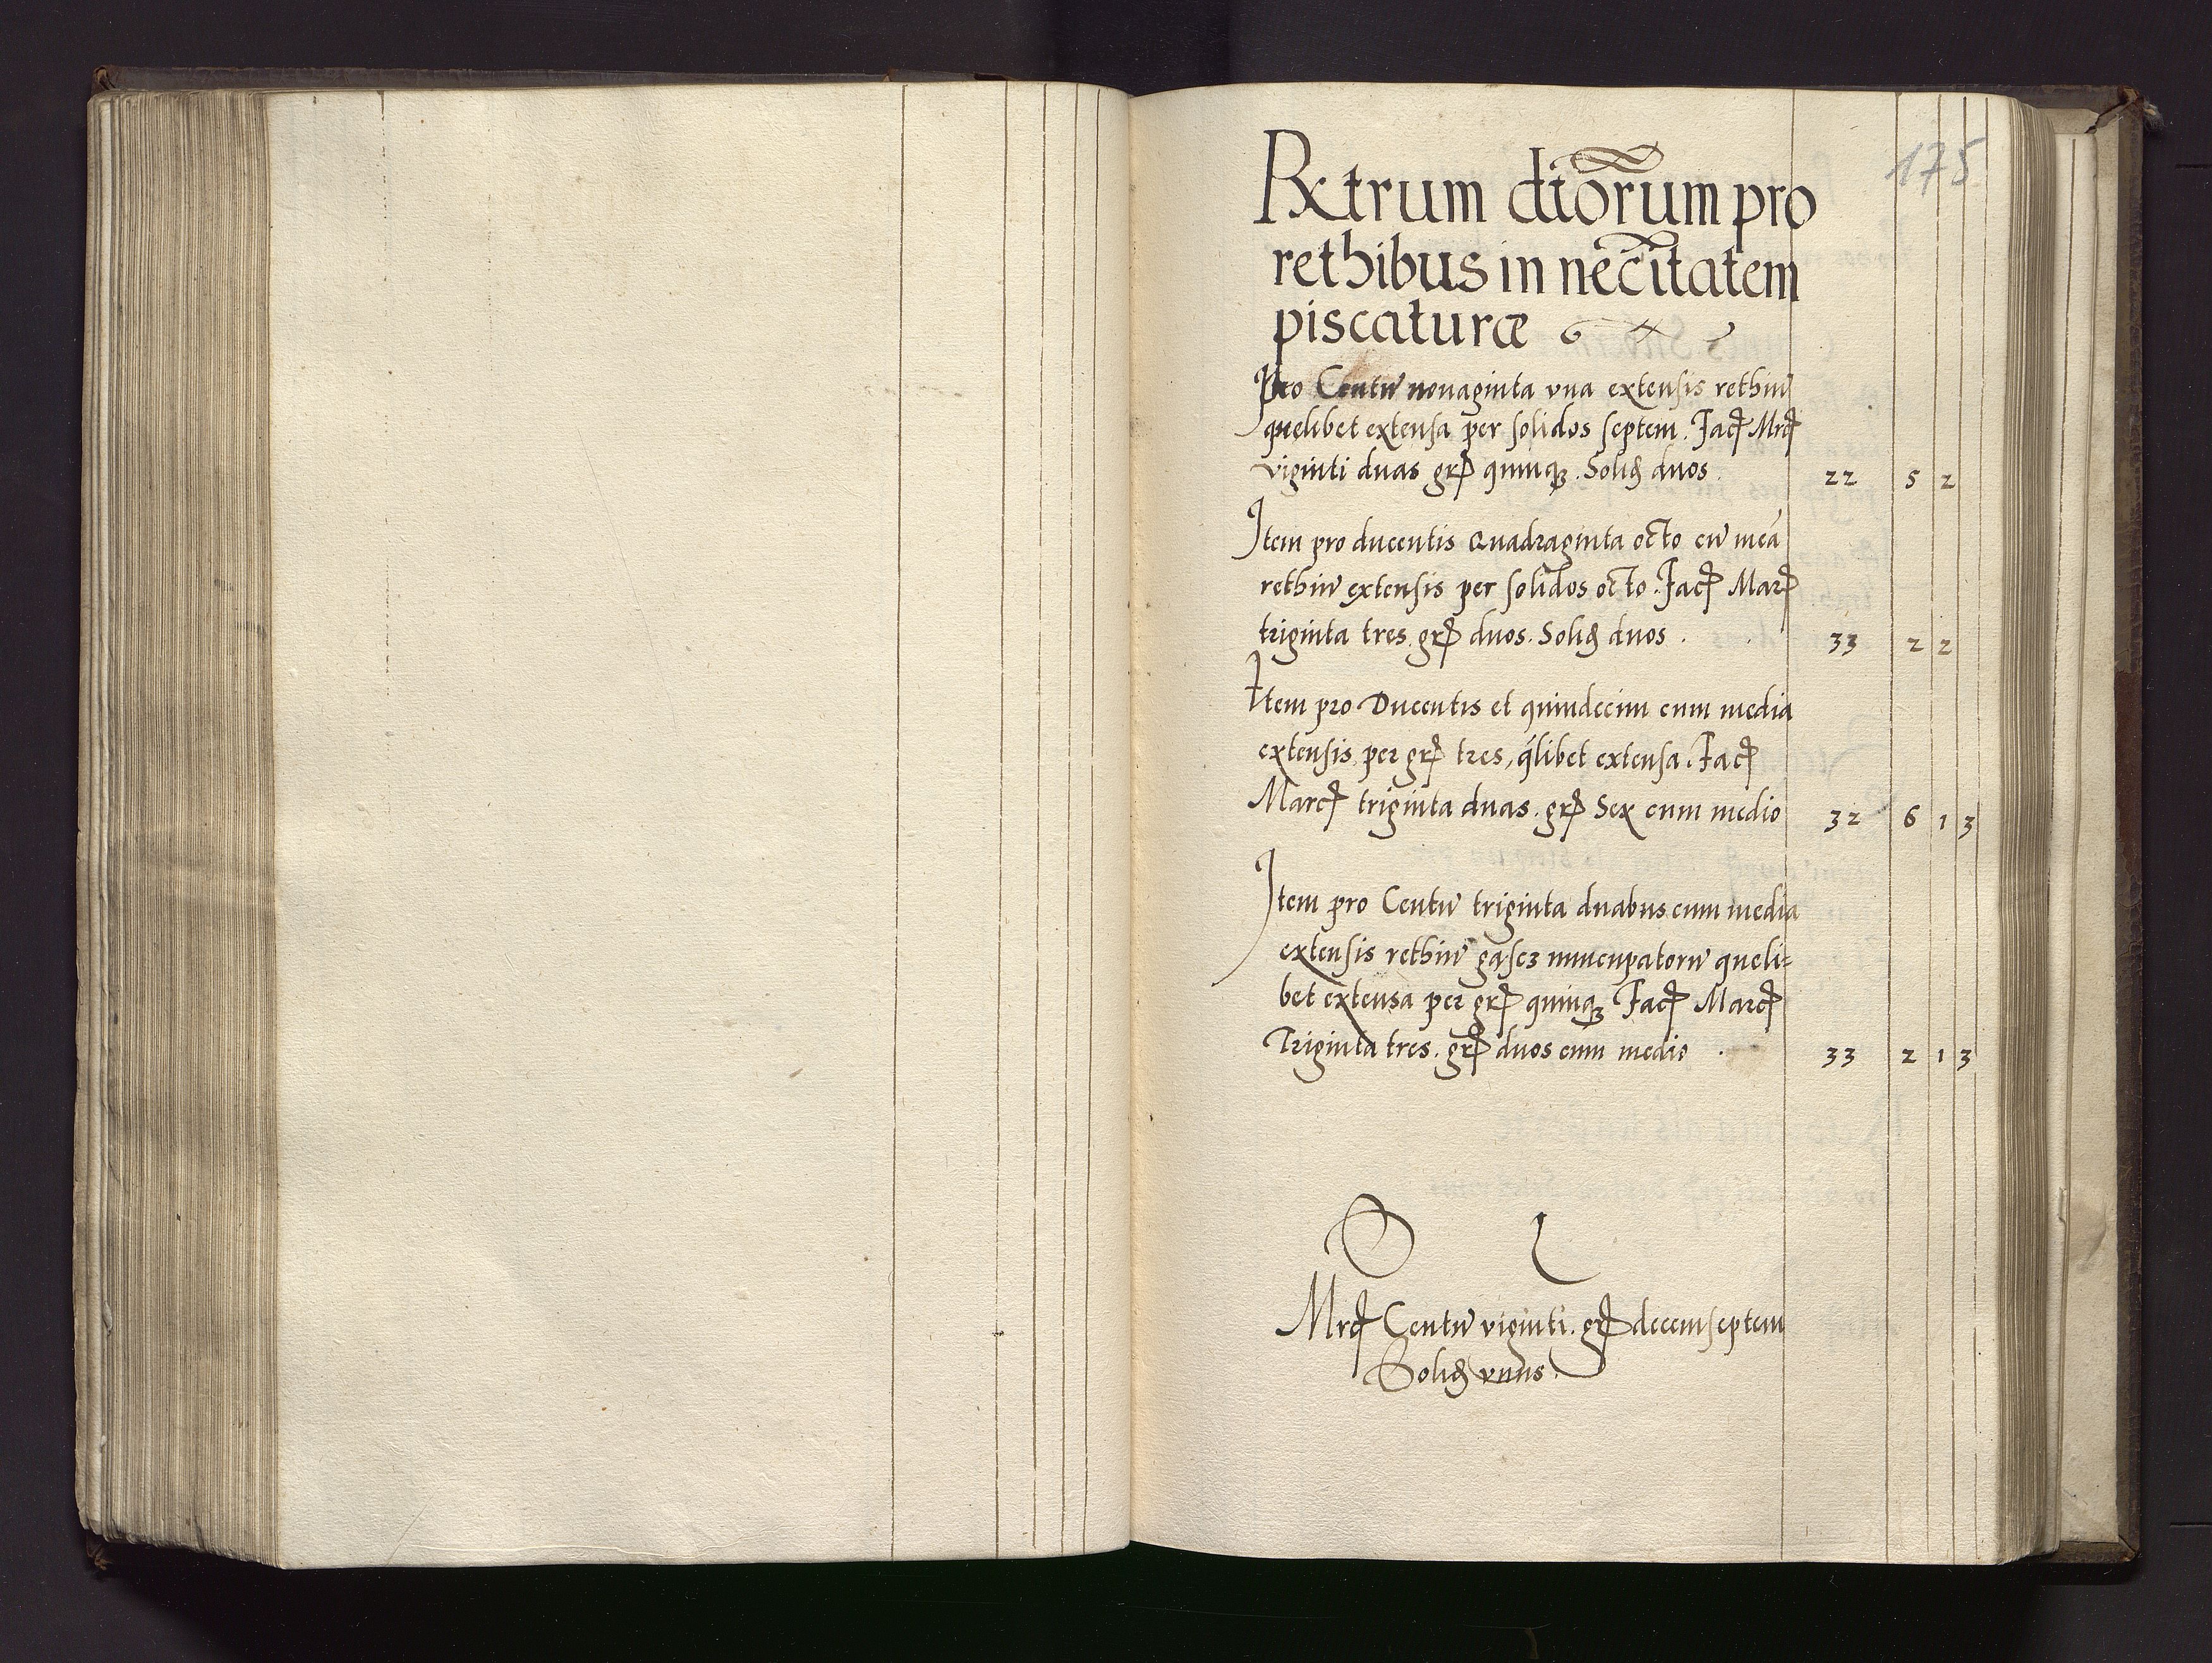 175
Rxtrum dtorum pro
rethibus in necitatem
piscaturæ
Pro Centū nonaginta vna extensis rethiū
quelibet extensa per solidos septem. Facꝭ Mrcꝭ
viginti duas grꝭ quinqꝫ. Solidꝭ duos. 22 5 2
Item pro ducentis Quadraginta octo cū meā
rethiū extensis per solidos octo. Facꝭ Marꝭ
triginta tres. grꝭ duos. Solidꝭ duos. 33 2 2
Item pro Ducentis et quindecim cum media
extensis per grꝭ tres, q̄libet extensa. Facꝭ
Marcꝭ triginta duas. grꝭ Sex cum medio 32 6 1 3
Item pro Centū triginta duabus cum media
extensis rethiū gasez nuncupatorū queli=
bet extensa per grꝭ quinqꝫ Facꝭ Marcꝭ
Triginta tres. grꝭ duos cum medio 33 2 1 3
Mrcꝭ Centū viginti. grꝭ decem septem
Solidꝭ vnus.